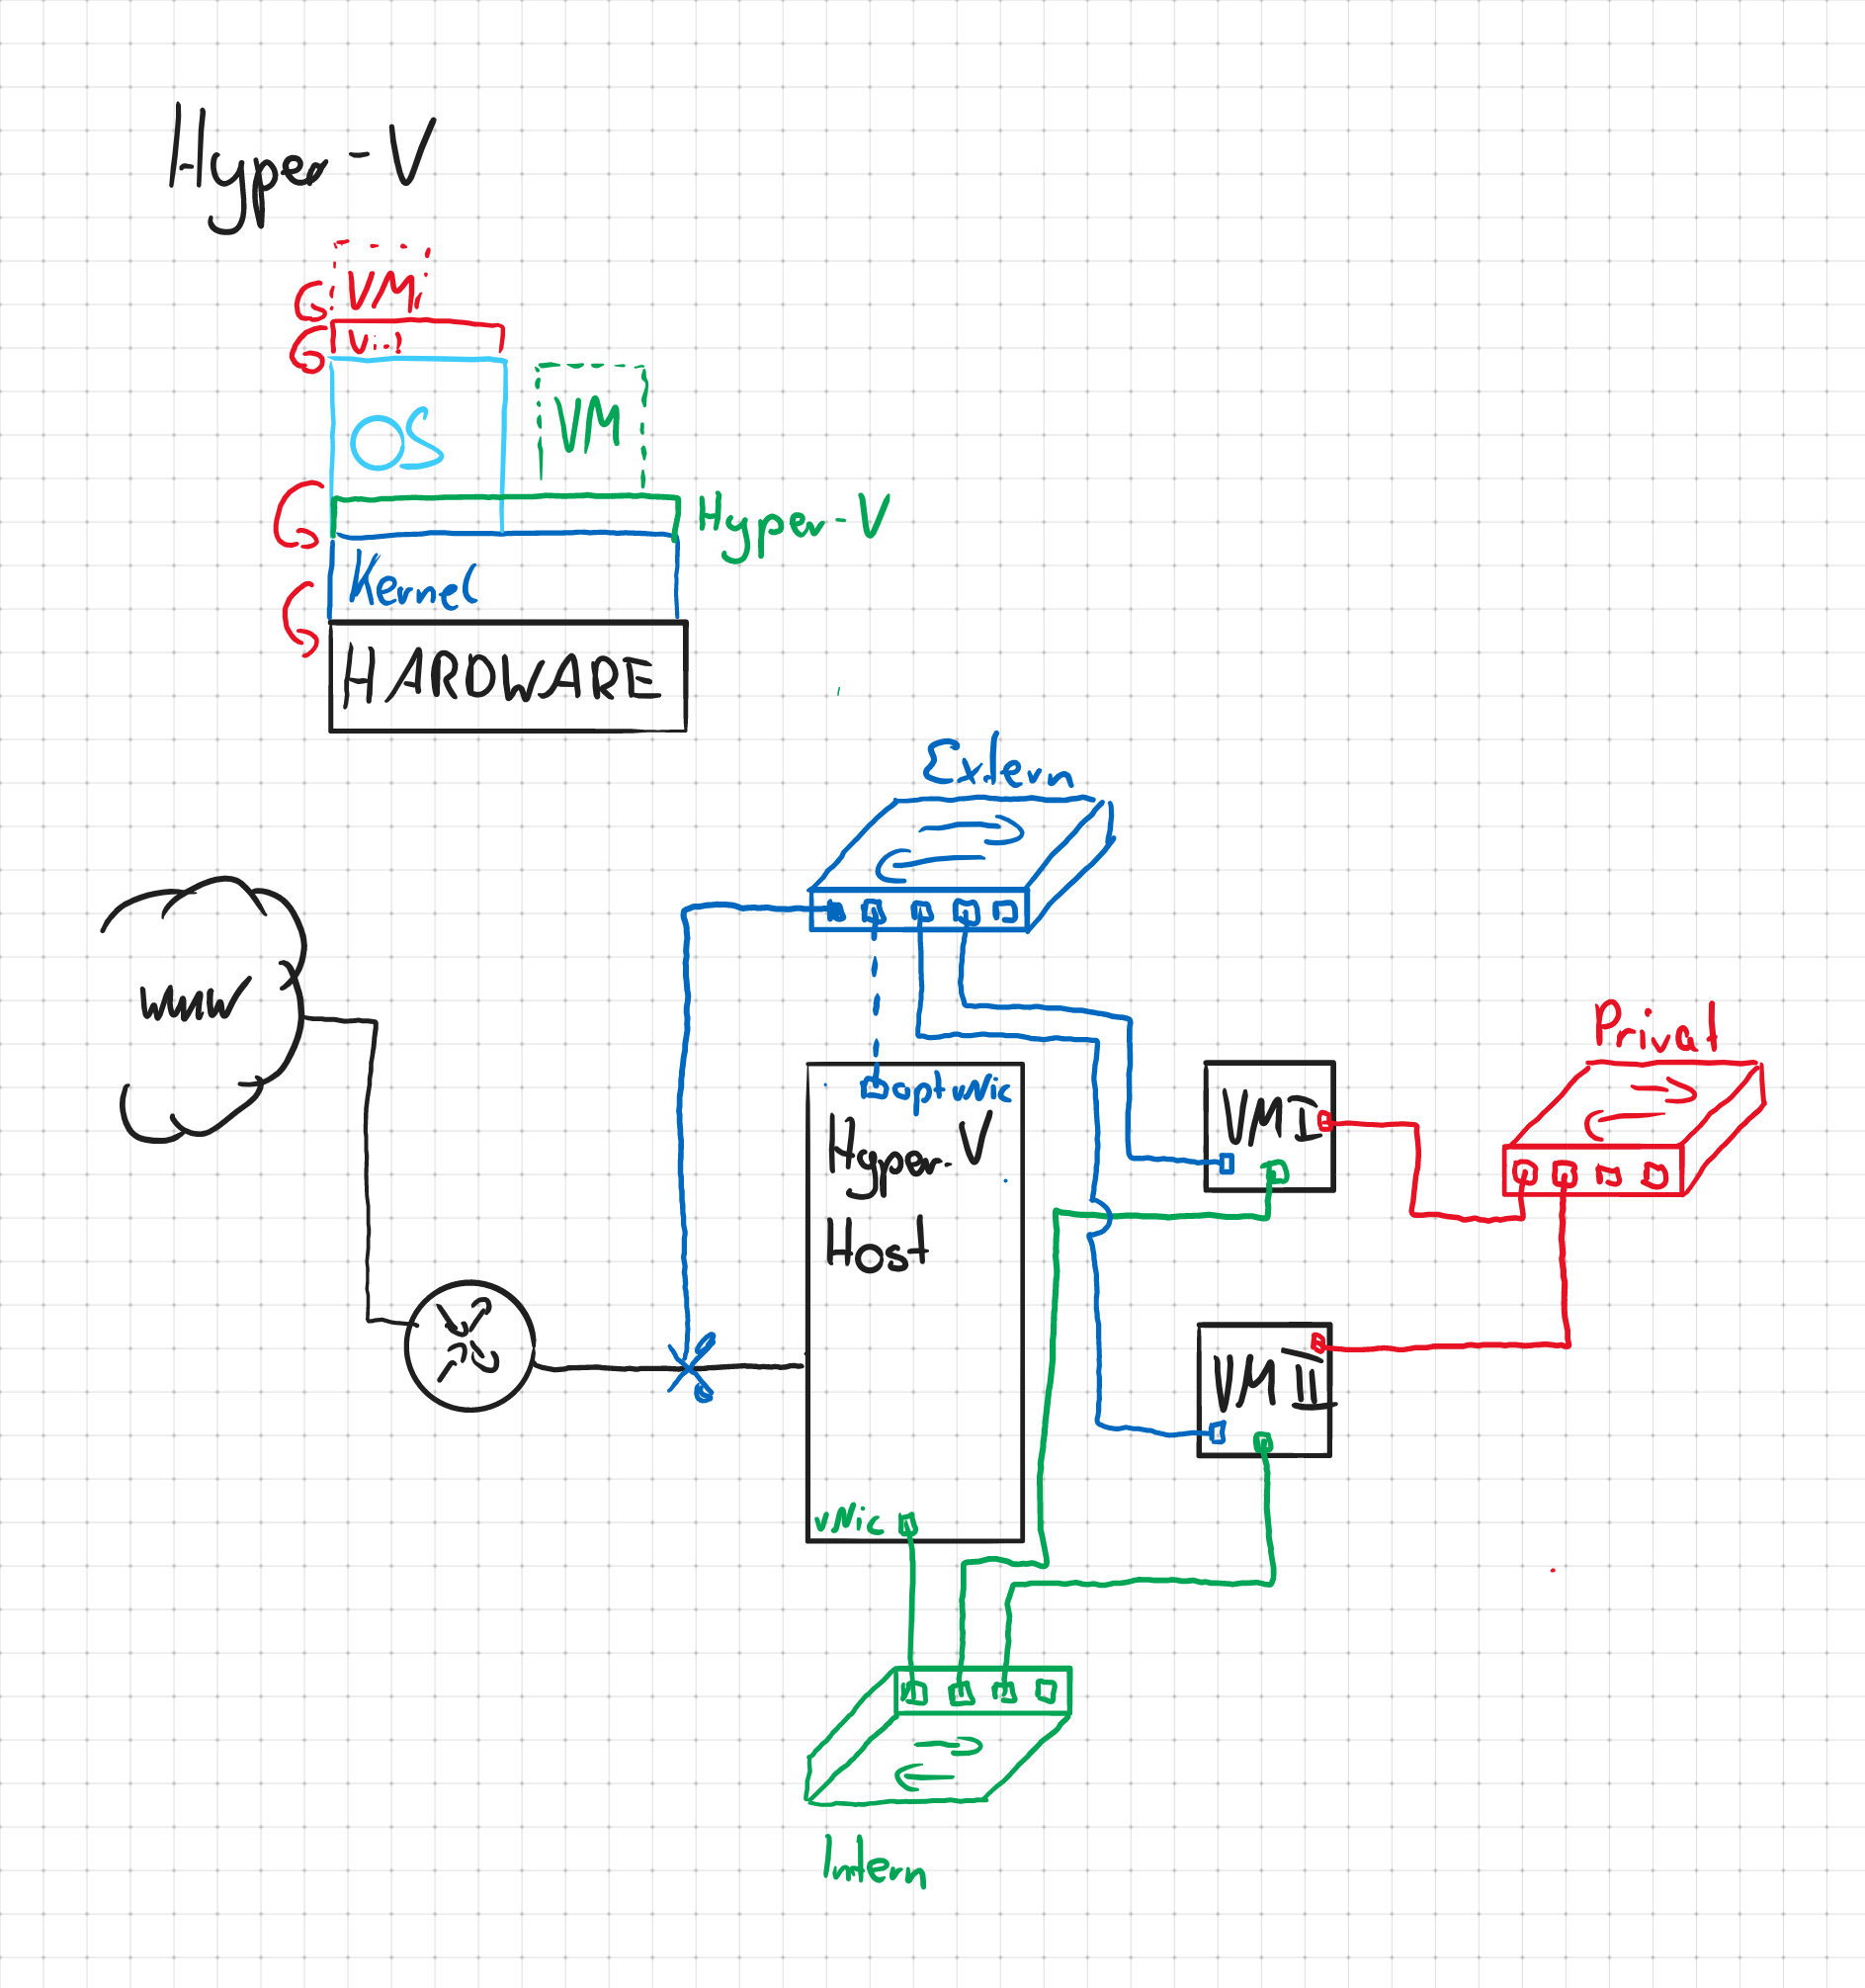 Hyper-V
VM
OS
VM
Hyper-V
Kernel
HARDWARE
Extern
www
Privat
opt vNic
Hyper-V
Host
VM I
VM II
vNic
Intern